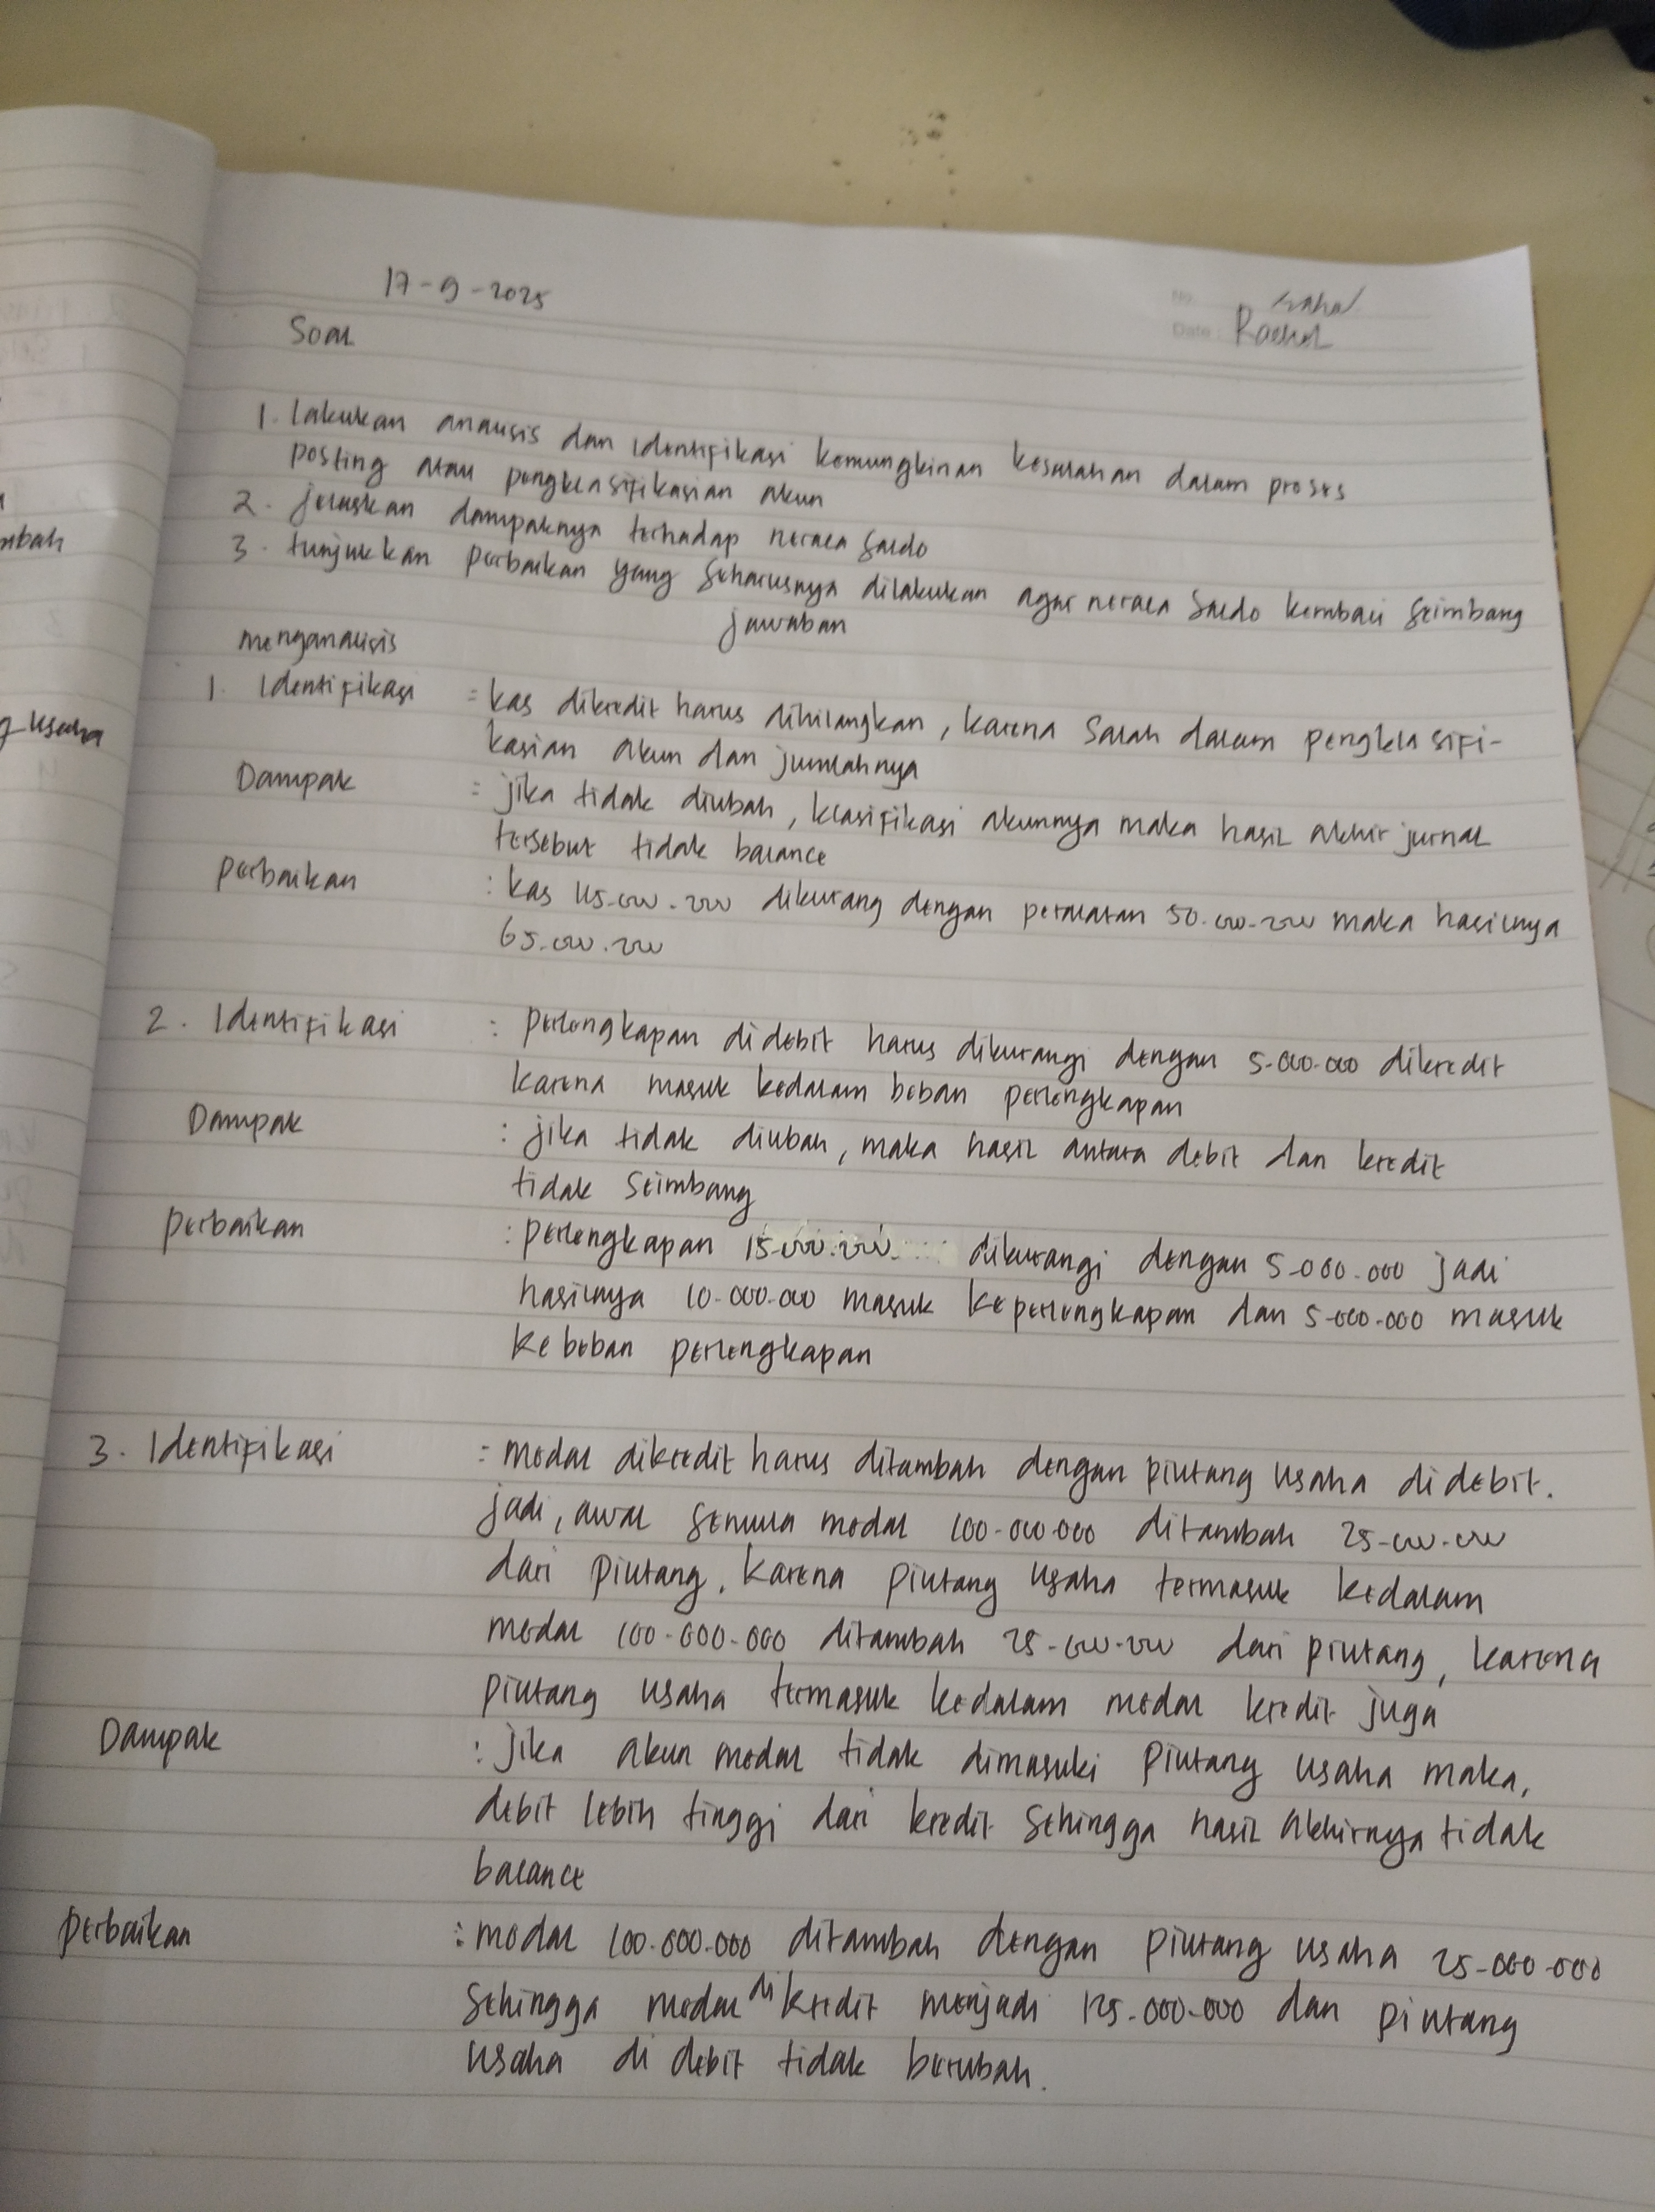 17-9-2025
No.
Date:
Rachel
Soal
1. lakukan analisis dan identifikasi kemungkinan kesalahan dalam proses
posting atau pengklasifikasian akun
2. jelaskan dampaknya terhadap neraca saldo
3. tunjukkan perbaikan yang seharusnya dilakukan agar neraca saldo kembali seimbang
jawaban
menganalisis
1. Identifikasi = kas dikredit harus dihilangkan, karena salah dalam pengklasifi-
kasian akun dan jumlahnya
Dampak = jika tidak diubah, klasifikasi akunnya maka hasil akhir jurnal
tersebut tidak balance
perbaikan : kas 115.000.000 dikurang dengan peralatan 50.000.000 maka hasilnya
65.000.000
2. Identifikasi : perlengkapan didebit harus dikurangi dengan 5.000.000 dikredit
karena masuk kedalam beban perlengkapan
Dampak : jika tidak diubah, maka hasil antara debit dan kredit
tidak seimbang
perbaikan : perlengkapan 15.000.000 dikurangi dengan 5.000.000 jadi
hasilnya 10.000.000 masuk keperlengkapan dan 5.000.000 masuk
ke beban perlengkapan
3. Identifikasi = modal dikredit harus ditambah dengan piutang usaha didebit.
jadi, awal semula modal 100.000.000 ditambah 25.000.000
dari piutang, karena piutang usaha termasuk kedalam
modal 100.000.000 ditambah 25.000.000 dari piutang, karena
piutang usaha termasuk kedalam modal kredit juga
Dampak : jika akun modal tidak dimasuki piutang usaha maka,
debit lebih tinggi dari kredit sehingga hasil akhirnya tidak
balance
perbaikan : modal 100.000.000 ditambah dengan piutang usaha 25.000.000
sehingga modal di kredit menjadi 125.000.000 dan piutang
usaha di debit tidak berubah.
mbah
usaha